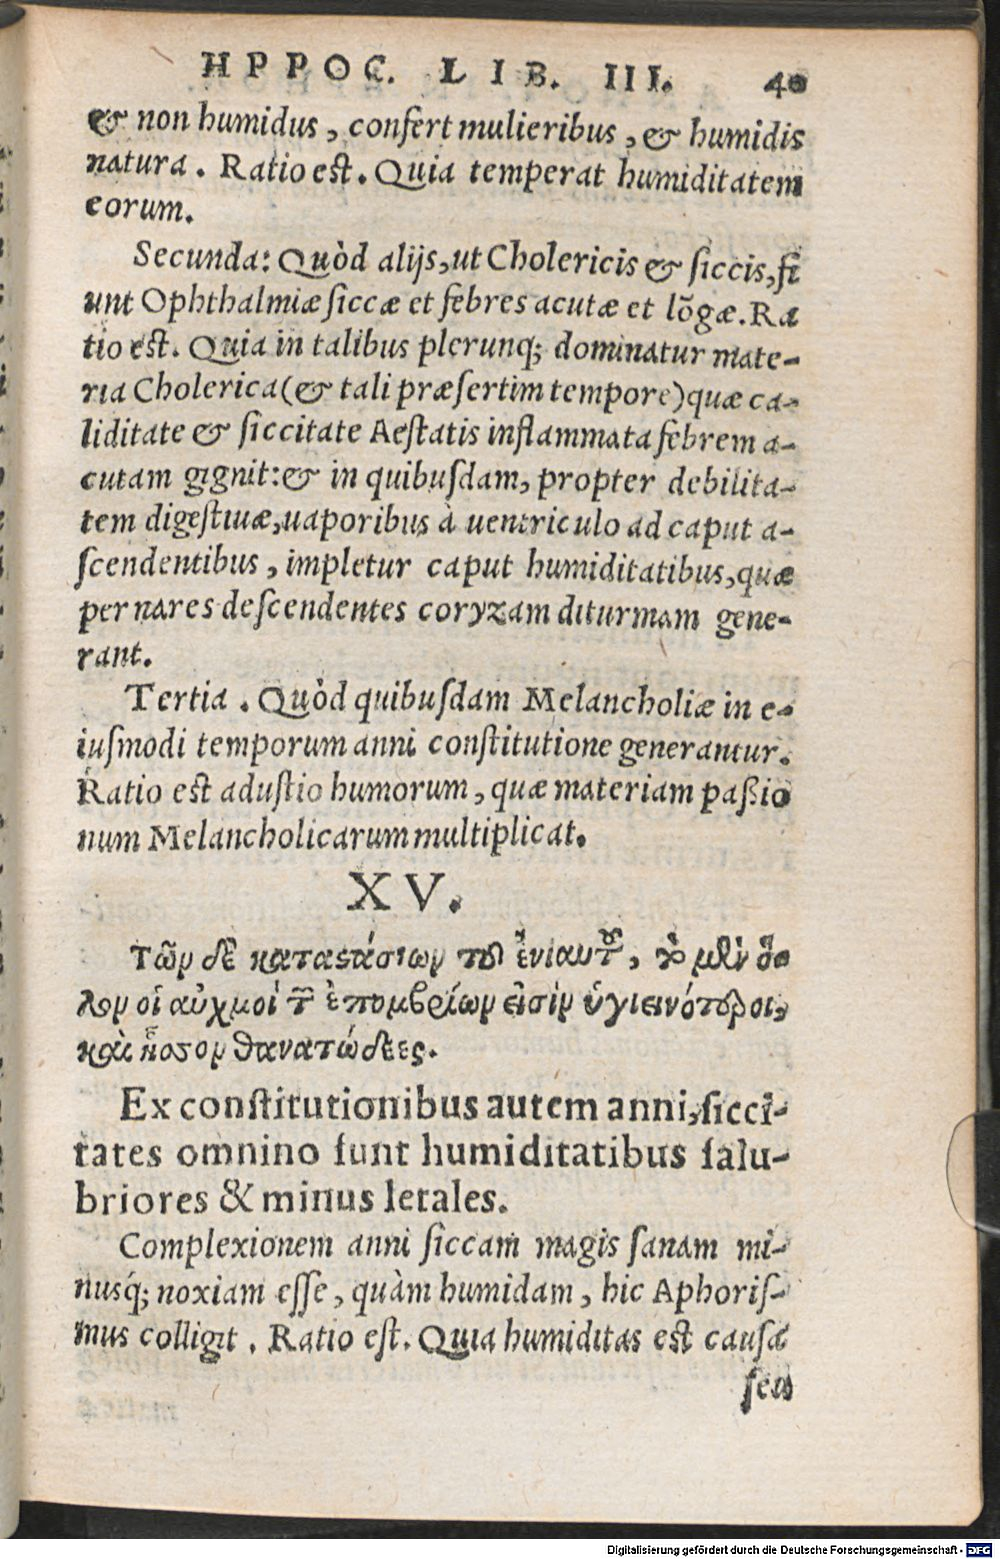 HPPOC. LIB. III. 40
& non humidus, confert mulieribus, & humidis
natura. Ratio est. Quia temperat humiditatem
eorum.
Secunda: Quòd alijs, ut Cholericis & siccis, fi
unt Ophthalmiæ siccæ et febres acutæ et lōgæ. Ra
tio est. Quia in talibus plerunq; dominatur mate-
ria Cholerica (& tali præsertim tempore) quæ ca-
liditate & siccitate Aestatis inflammata febrem a-
cutam gignit: & in quibusdam, propter debilita-
tem digestiuæ, uaporibus à uentriculo ad caput a-
scendentibus, impletur caput humiditatibus, quæ
per nares descendentes coryzam diturmam gene-
rant.
Tertia. Quòd quibusdam Melancholiæ in e-
iusmodi temporum anni constitutione generantur.
Ratio est adustio humorum, quæ materiam paßio
num Melancholicarum multiplicat.
XV.
Τῶν δὲ καταστάσιων τοῦ ἐνιαυτοῦ, τὸ μὲν ὅ-
λον οἱ αὐχμοὶ τῶν ἐπομβρίων εἰσὶν ὑγιεινότεροι,
καὶ ἧσσον θανατώδεες.
Ex constitutionibus autem anni, sicci-
tates omnino sunt humiditatibus salu-
briores & minus letales.
Complexionem anni siccam magis sanam mi-
nusq́; noxiam esse, quàm humidam, hic Aphoris-
mus colligit. Ratio est. Quia humiditas est causa
seu
Digitalisierung gefördert durch die Deutsche Forschungsgemeinschaft - DFG